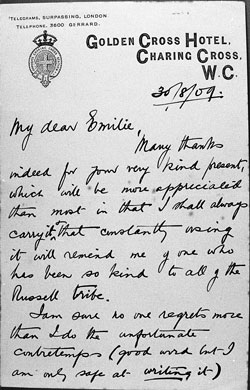 TELEGRAMS, SURPASSING, LONDON
TELEPHONE, 3600 GERRARD.
GOLDEN CROSS HOTEL,
CHARING CROSS,
W.C.
30/8/09.
My dear Emilie,
Many thanks
indeed for your very kind present,
which will be more appreciated
than most in that I shall always
carry it & that constantly using
it will remind me of one who
has been so kind to all of the
Russell tribe.
I am sure no one regrets more
than I do the unfortunate
contretemps (good word but I
am only safe at writing it)